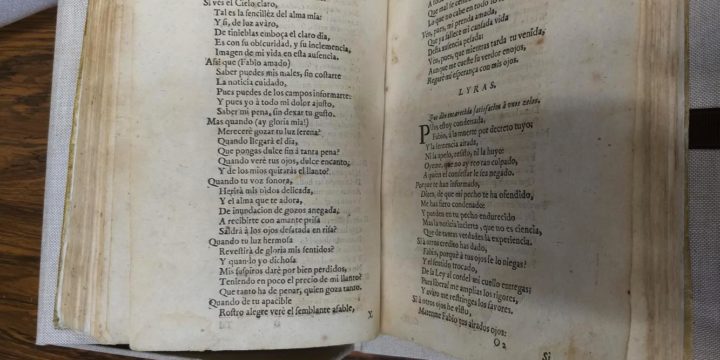 Si ves el Cielo claro,
Tal es la sencillèz del alma mia;
Y si, de luz avàro,
De tinieblas emboça el claro dia,
Es con su obscuridad, y su inclemencia,
Imagen de mi vida en esta ausencia.
Assi que (Fabio amado)
Saber puedes mis males, sin costarte
La noticia cuidado,
Pues puedes de los campos informarte:
Y pues yo à todo mi dolor ajusto,
Saber mi pena, sin dexar tu gusto.
Mas quando (ay gloria mia!)
Mereceré gozar tu luz serena?
Quando llegarà el dia,
Que pongas dulce fin à tanta pena?
Quando veré tus ojos, dulce encanto,
Y de los mios quitaràs el llanto?
Quando tu voz sonora,
Herirà mis oidos delicada,
Y el alma que te adora,
De inundacion de gozos anegada,
A recibirte con amante prisa
Saldrà à los ojos desatada en risa?
Quando tu luz hermosa
Revestirà de gloria mis sentidos?
Y quando yo dichosa
Mis suspiros daré por bien perdidos,
Teniendo en poco el precio de mi llanto?
Que tanto ha de penar, quien goza tanto.
Quando de tu apacible
Rostro alegre veré el semblante afable,
X
A toda
Que mal se
La que no cabe en todo lo
Vès, pues, mi prenda amada,
Que ya fallece mi cansada vida
Desta ausencia pesada:
Vèn, pues, que mientras tarda tu venida,
Aunque me cueste su verdor enojos,
Regarè mi esperança con mis ojos.
LYRAS,
Que dàn encarecida satisfacion à unos zelos.
PUes estoy condenada,
Fabio, à la muerte por decreto tuyo:
Y la sentencia airada,
Ni la apelo, resisto, ni la huyo:
Oyeme, que no ay reo tan culpado,
A quien el confessar le sea negado.
Porque te han informado,
Dizes, de que mi pecho te ha ofendido,
Me has fiero condenado:
Y pueden en tu pecho endurecido
Mas la noticia incierta, que no es ciencia,
Que de tantas verdades la experiencia.
Si à otros credito has dado,
Fabio, porquè à tus ojos se lo niegas?
Y el sentido trocado,
De la Ley al cordel mi cuello entregas?
Pues liberal me amplias los rigores,
Y avaro me restringes los favores.
Si à otros ojos he visto,
Matenme Fabio tus airados ojos:
O2
Si